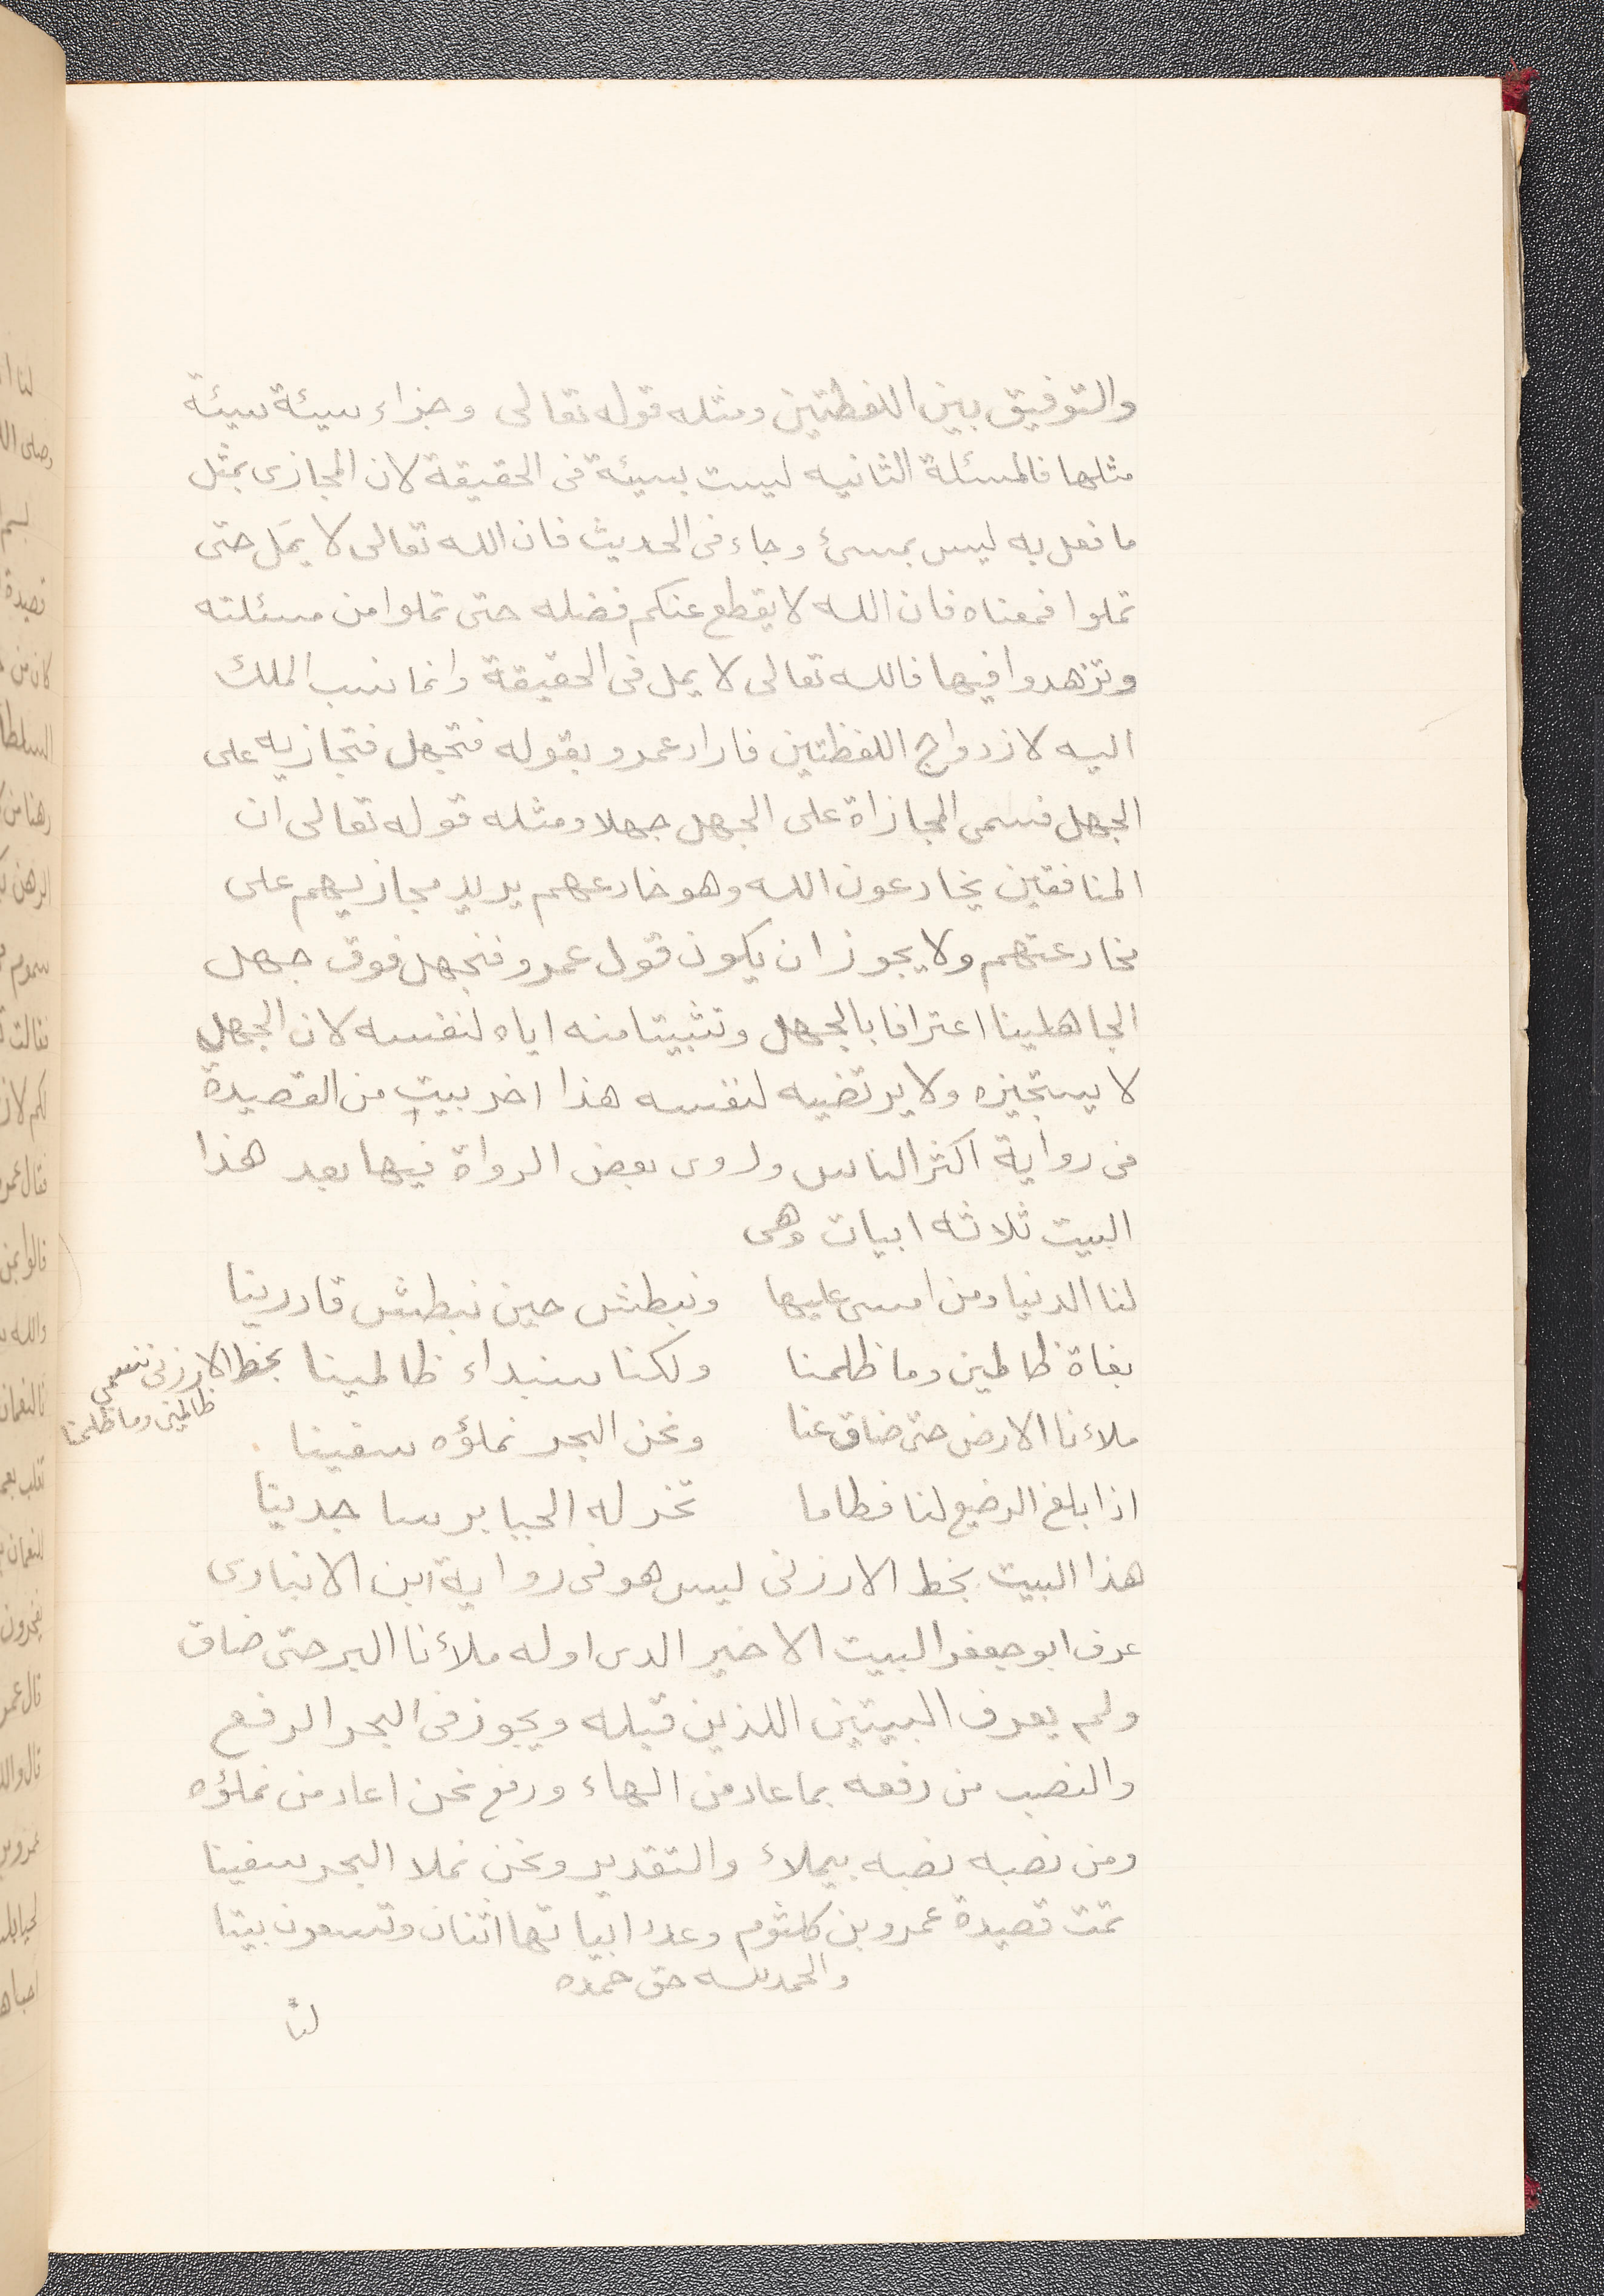 والتوفيق بين اللفظتين ومثله قوله تعالى وجزاء سيئة سيئة
مثلها فالمسئلة الثانيه ليست بسيئة فى الحقيقة لان المجازى بمثل
ما فعل به ليس بمسئ وجاء فى الحديث فان الله تعالى لا يمَل حتى
تملوا فمعناه فان الله لا يقطع عنكم فضله حتى تملوا من مسئلته
وتزهدوا فيها فالله تعالى لا يمل فى الحقيقة وانما نسب الملك
اليه لازدواج اللفظتين فاراد عمرو بقوله فتجهل فتجازيه على
الجهل فسمى المجازاة على الجهل جهلا ومثله قوله تعالى ان
المنافقين يخادعون الله وهو خادعهم يريد مجازيهم على
مخادعتهم ولا يجوز ان يكون قول عمرو فنجهل فوق جهل
الجاهلينا اعترافا بالجهل وتثبيتا منه اياه لنفسه لان الجهل
لا يستجيزه ولا يرتضيه لنفسه هذا اخر بيتٍ من القصيدة
فى رواية اكثر الناس وروى بعض الرواة فيها بعد هذا
البيت ثلاثه ابيات وهى
لنا الدنيا ومن امسى عليها ونبطش حين نبطش قادرينا
بغاة ظالمين وما ظلمنا ولكنا سنبداء ظالمينا
بخط الارزنى نسمى
ظالمين وما ظلمنا
ملاءنا الارض حتى ضاق عنا ونحن البحر نملؤه سفينا
اذا بلغ الرضيع لنا فطاما تخر له الجبابر ساجدينا
هذا البيت بخط الارزنى ليس هو فى رواية ابن الانبارى
عرف ابو جعفر البيت الاخير الدى اوله ملأنا البر حتى ضاق
ولم يعرف البيتين اللذين قبله ويجوز فى البحر الرفع
والنصب من رفعه بما عاد من الهاء ورفع نحن اعاد من نملؤه
ومن نصبه نصبه بيملاء والتقدير ونحن نملا البحر سفينا
تمت قصيدة عمرو بن كلثوم وعدد ابياتها اثنان وتسعون بيتا
والحمد لله حق حمده
لنا